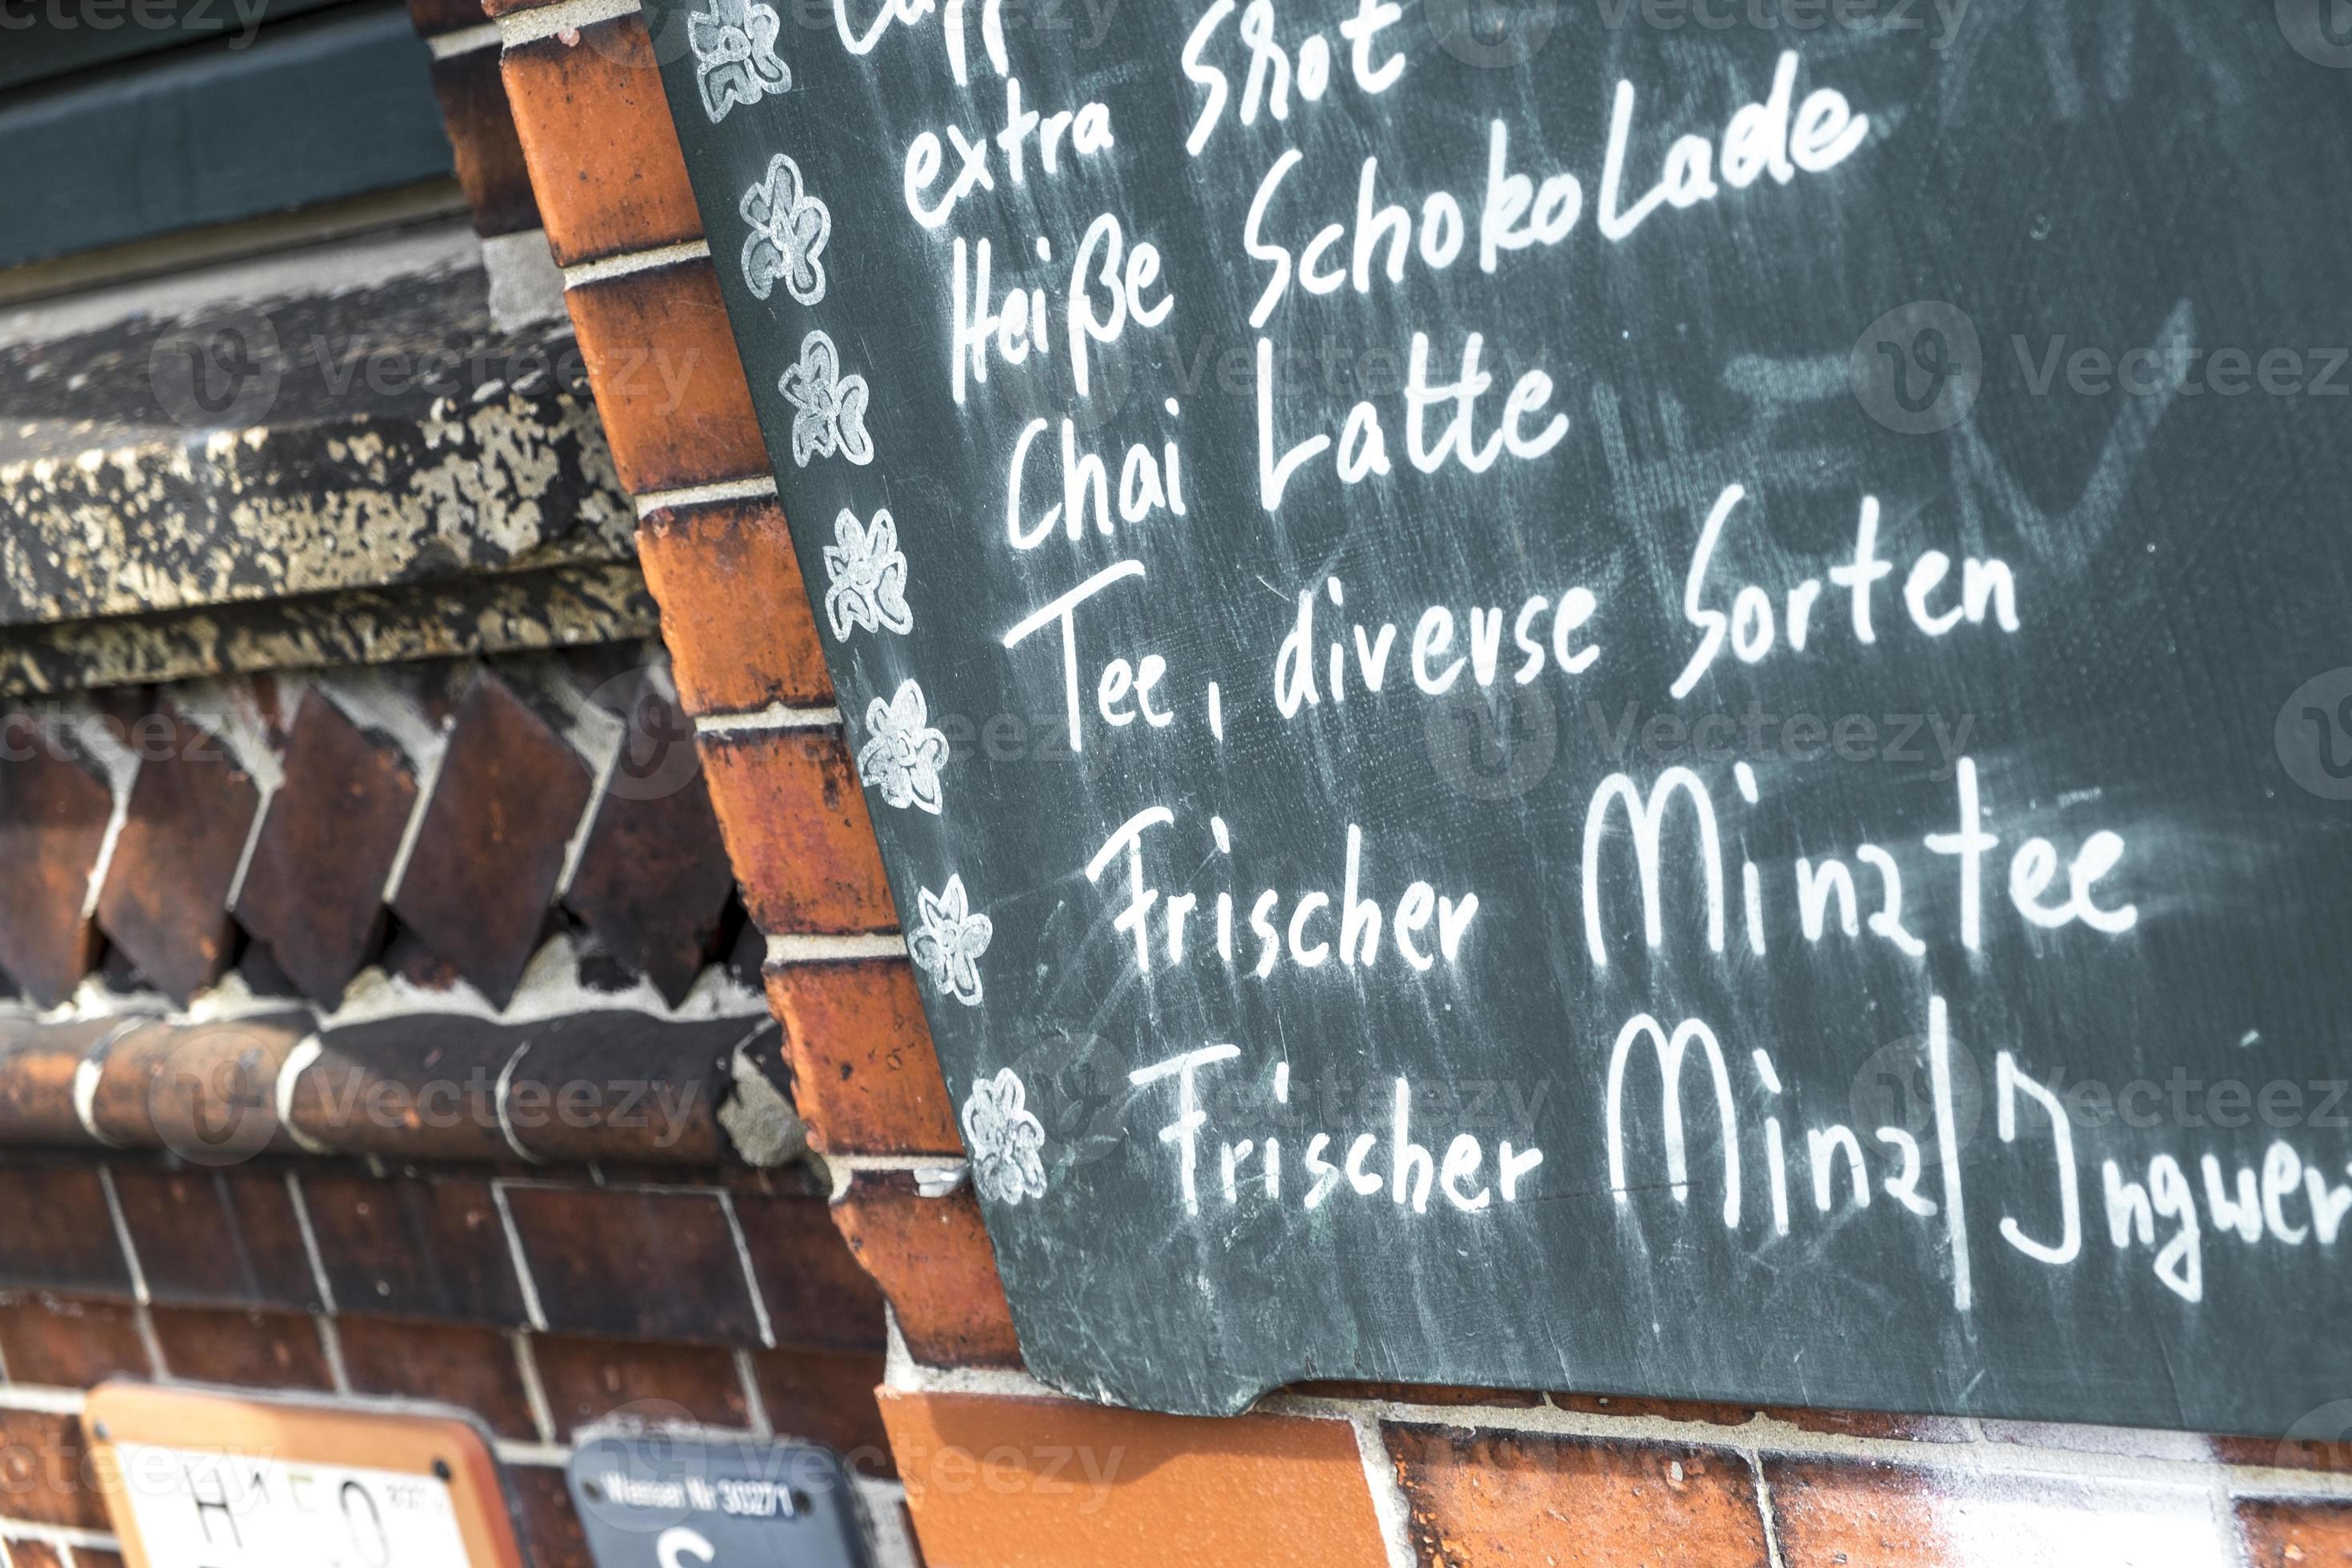 extra Shot
Heiße Schokolade
Chai Latte
Tee, diverse Sorten
Frischer Minztee
Frischer Minz/Ingwer
Wasser Nr 30271